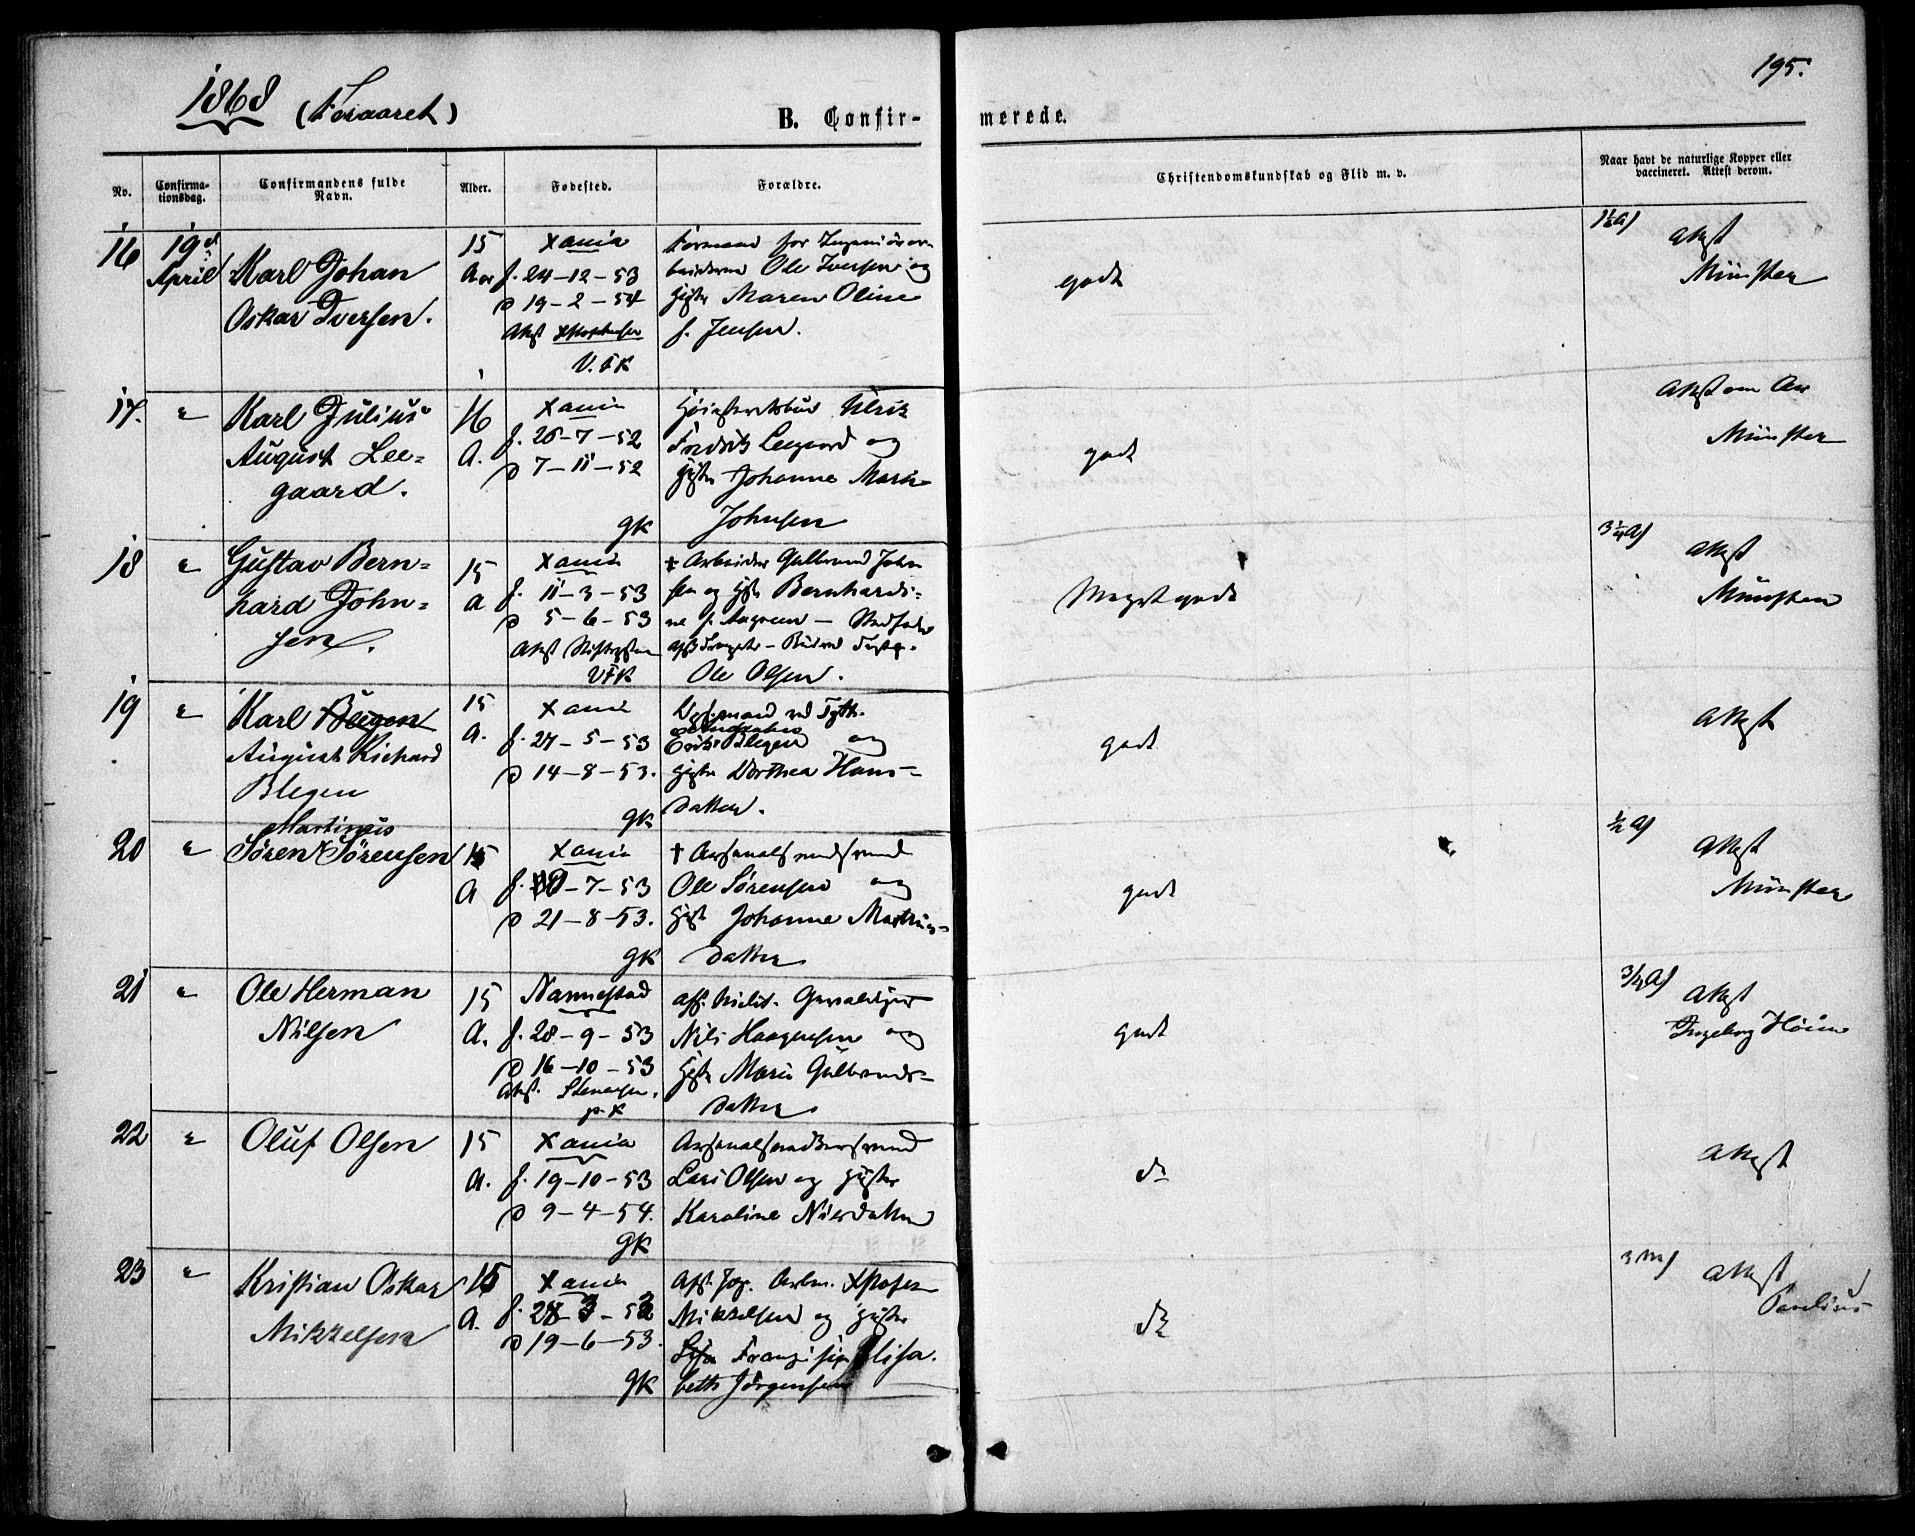 195.
1868 (Foraaret)
B. Confir- merede.
No.
Confirma-
tionsdag.
Confirmandens fulde
Navn.
Alder.
Fødested.
Forældre.
Christendomskundskab og Flid m. v.
Naar havt de naturlige Kopper eller
vaccineret. Attest derom.
16
19d
April
Karl Johan
Oskar Iversen.
15
Aar
Xania
f. 24-12-53
d 19-2-54
Attst
V.FK
Formand for Ingeniørar-
beiderne Ole Iversen og
Hstr Maren Oline
f. Jensen.
godt
1½ A)
Attest
Münster
17.
"
Karl Julius
August Lee-
gaard.
16
A.
Xania
f. 26-7-52
d 7-11-52
GK
Høiesteretsbud Ulrik
Fredrik Leegaard og
Hstr Johanne Marie
Johnsen
godt
Attest om Ar
Münster
18
"
Gustav Bern-
hard John-
sen.
15
A
Xania
f. 11-3-53
d 5-6-53
Attst
VFK
† Arbeider Gulbrand John
sen og Hstr Bernhardi-
ne f. –
Ole Olsen.
Meget godt
3¼ A)
Attest
Münster
19
"
Karl Blegen
August Richard
Blegen
15
A.
Xania
f. 27-5-53
d 14-8-53.
GK
ved
Erik Blegen og
Hstr Dorthea Hans-
datter.
godt
Attest
20
"
Martinius
Søren Sørensen
15
A
Xania
f. 30-7-53
d 21-8-53.
GK
† Arsenals
Ole Sørensen og
Hstr Johanne Martins-
datter
godt
½ A)
Attest
Münster
21
"
Ole Herman
Nilsen
15
A.
Nannestad
f. 28-9-53
d 16-10-53
Attst. Stenersen.
p. K
Nils Haagensen og
Hstr Marie Gulbrands-
datter
godt
3/4 A)
Attest
Ingeborg
22
"
Oluf Olsen
15
A.
Xania
f. 19-10-53
d 9-4-54.
GK
Lars Olsen og Hustru
Karoline Nilsdatter
do
Attest
23
"
Kristian Oskar
Mikkelsen
15
A.
Xania
f. 28-3-53
d 19-6-53.
GK
Mikkelsen og Hustru
Lisa Elisa-
beth Jørgensen
do
3 M)
Attest